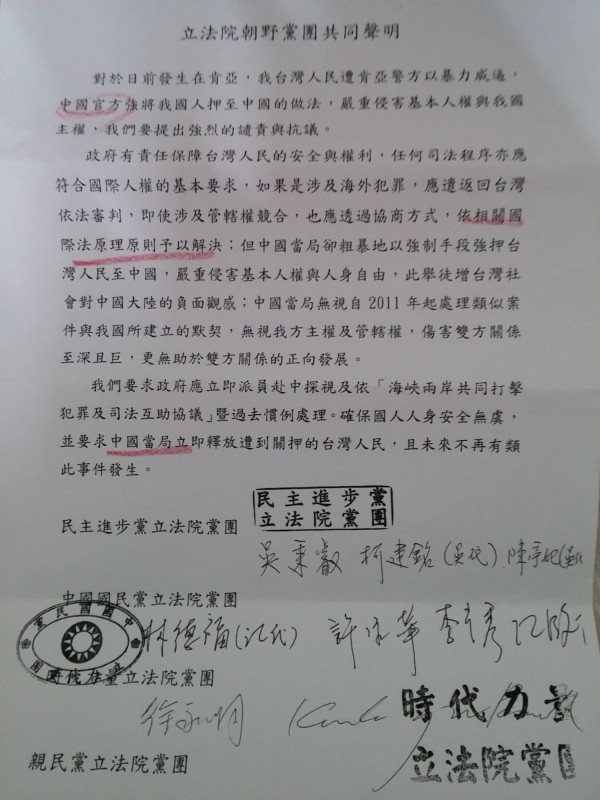 立法院朝野黨團共同聲明
對於日前發生在肯亞，我台灣人民遭肯亞警方以暴力威逼，
中國官方強將我國人押至中國的做法，嚴重侵害基本人權與我國
主權，我們要提出強烈的譴責與抗議。
政府有責任保障台灣人民的安全與權利，任何司法程序亦應
符合國際人權的基本要求，如果是涉及海外犯罪，應遣返回台灣
依法審判，即使涉及管轄權競合，也應透過協商方式，依相關國
際法原理原則予以解決；但中國當局卻粗暴地以強制手段強押台
灣人民至中國，嚴重侵害基本人權與人身自由，此舉徒增台灣社
會對中國大陸的負面觀感；中國當局無視自2011年起處理類似案
件與我國所建立的默契，無視我方主權及管轄權，傷害雙方關係
至深且巨，更無助於雙方關係的正向發展。
我們要求政府應立即派員赴中探視及依「海峽兩岸共同打擊
犯罪及司法互助協議」暨過去慣例處理。確保國人人身安全無虞，
並要求中國當局立即釋放遭到關押的台灣人民，且未來不再有類
此事件發生。
民主進步黨
立法院黨團
民主進步黨立法院黨團
吳秉叡 柯建銘(吳代) 陳亭妃
中國國民黨立法院黨團
中國國民黨
林德福(江代)
時代力量立法院黨團
徐永明
時代力量
立法院黨團
親民黨立法院黨團